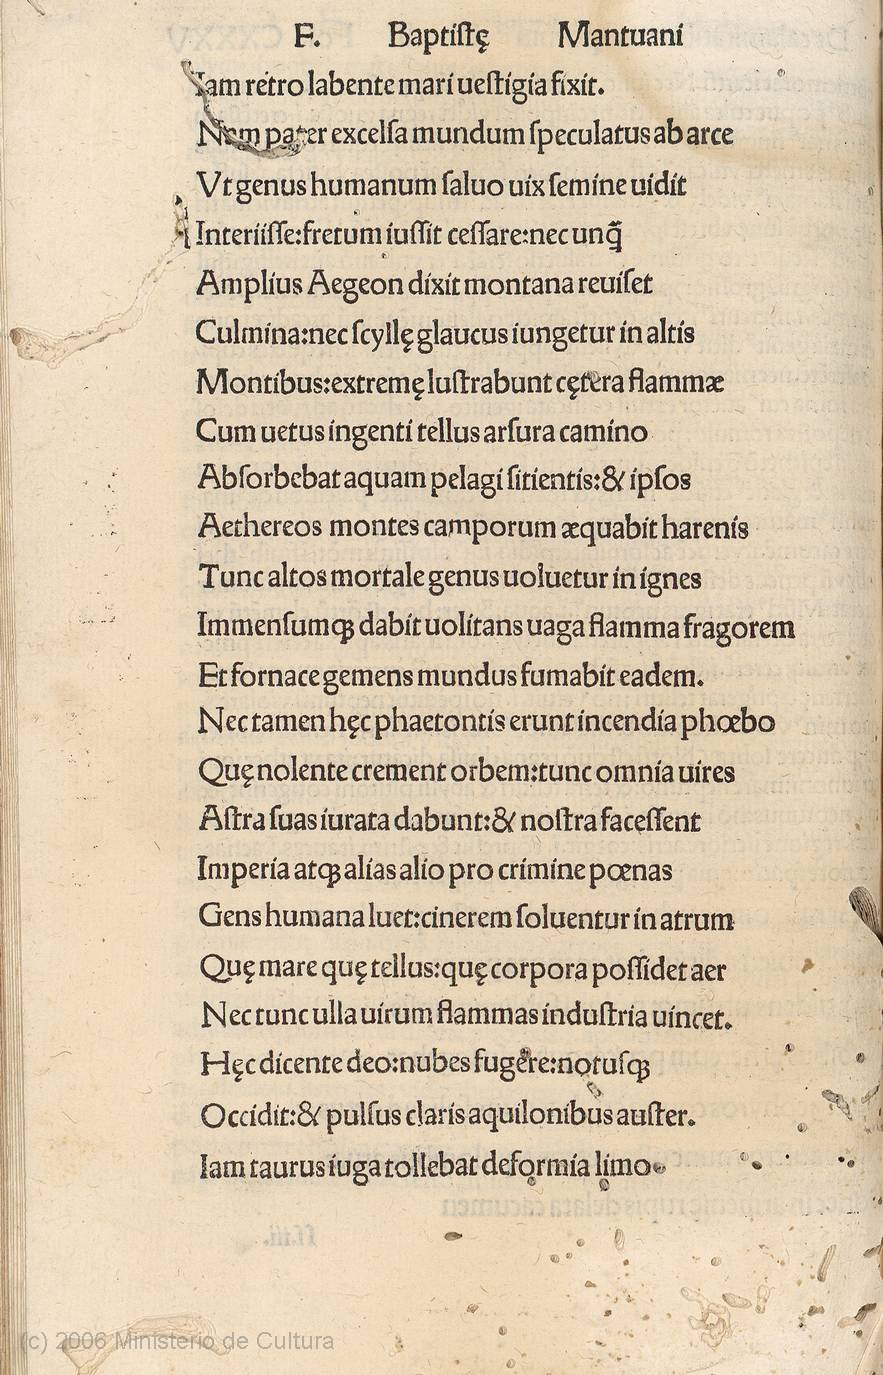 F. Baptiſtę Mantuani
Iam retro labente mari ueſtigia fixit.
Nam pater excelſa mundum ſpeculatus ab arce
Vt genus humanum ſaluo uix ſemine uidit
Interiiſſe:fretum iuſſit ceſſare:nec unq̃
Amplius Aegeon dixit montana reuiſet
Culmina:nec ſcyllę glaucus iungetur in altis
Montibus:extremę luſtrabunt cętera flammæ
Cum uetus ingenti tellus arſura camino
Abſorbebat aquam pelagi ſitientis:& ipſos
Aethereos montes camporum æquabit harenis
Tunc altos mortale genus uoluetur in ignes
Immenſumqꝫ dabit uolitans uaga flamma fragorem
Et fornace gemens mundus fumabit eadem.
Nec tamen hęc phaetontis erunt incendia phœbo
Quę nolente crement orbem:tunc omnia uires
Aſtra ſuas iurata dabunt:& noſtra faceſſent
Imperia atqꝫ alias alio pro crimine pœnas
Gens humana luet:cinerem ſoluentur in atrum
Quę mare quę tellus:quę corpora poſſidet aer
Nec tunc ulla uirum flammas induſtria uincet.
Hęc dicente deo:nubes fugere:notuſqꝫ
Occidit:& pulſus claris aquilonibus auſter.
Iam taurus iuga tollebat deformia limo
(c) 2006 Ministerio de Cultura